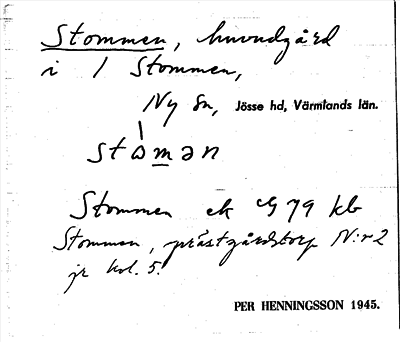 Stommen, huvudgård
i 1 Stommen,
Ny sn, Jösse hd, Värmlands län.
stomən
Stommen ek 79 kb
Stommen, prästgårdstorp N:r 2
jr kol. 5.
PER HENNINGSSON 1945.